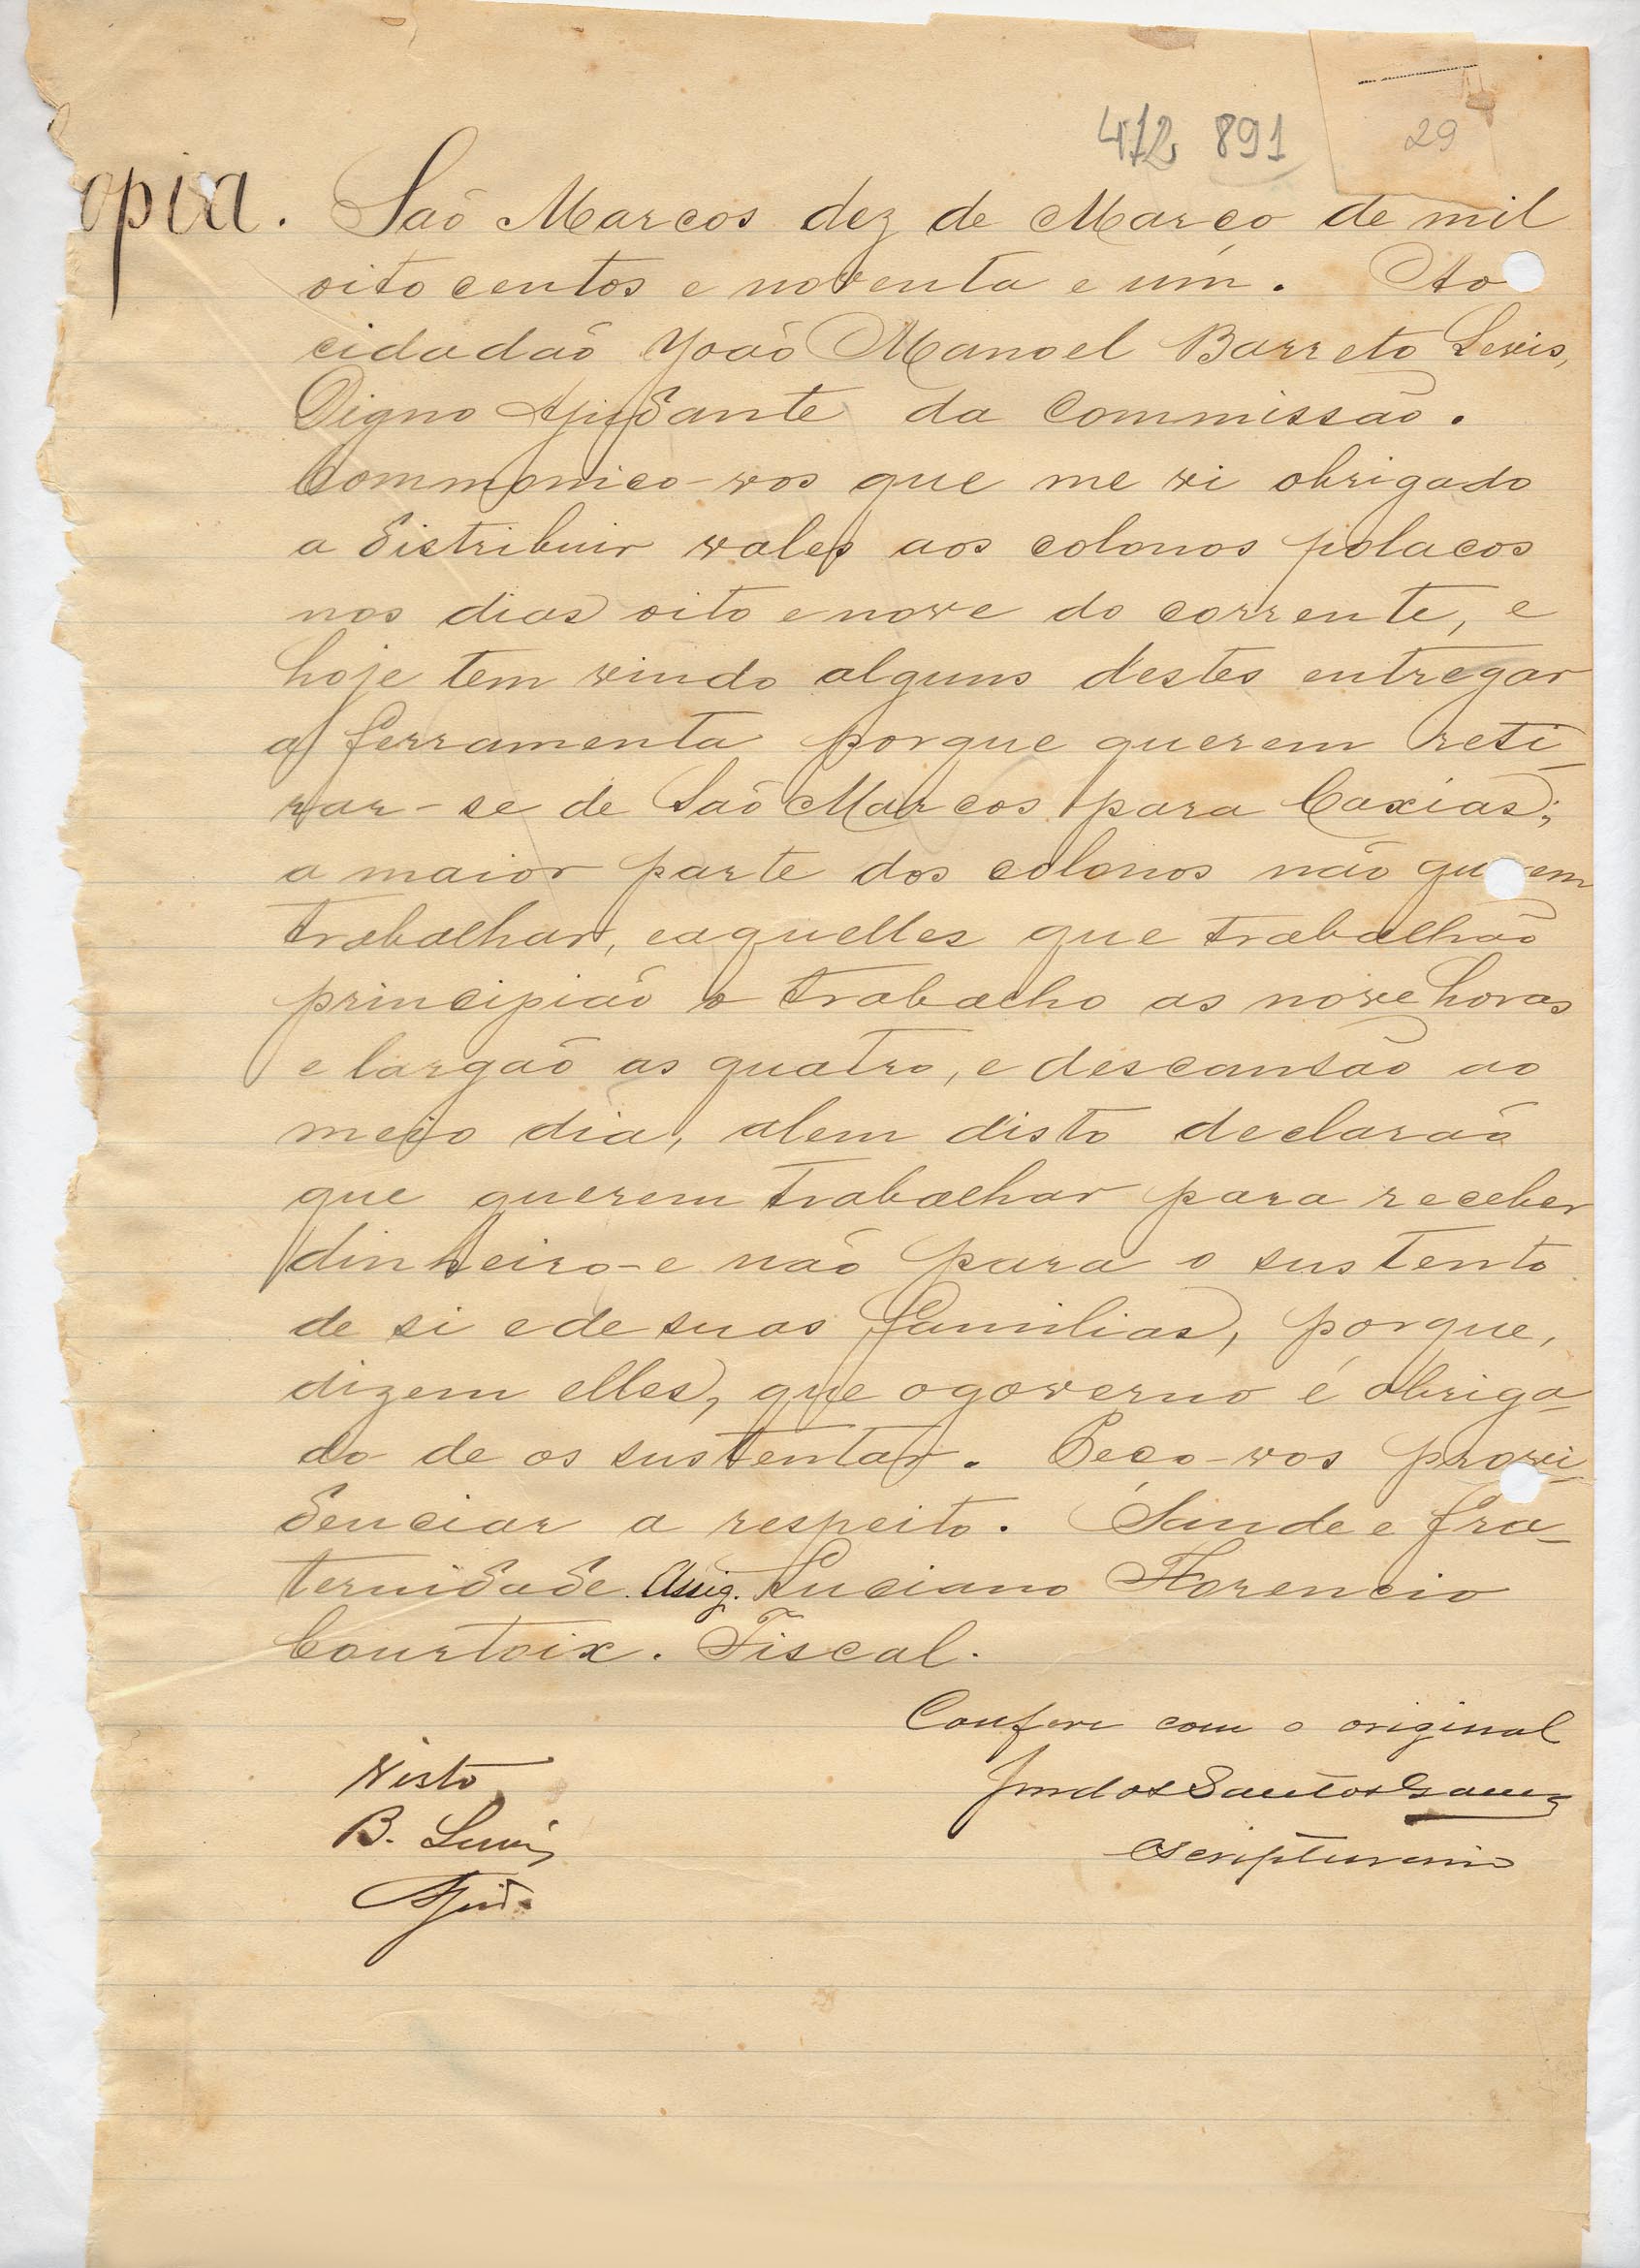 412 891
29
opia. Saõ Marcos dez de Março de mil
oito centos e noventa e um. Ao
cidadaõ Yoaõ Manoel Barreto Lewis,
Digno Ajudante da Commissão.
Commonico-vos que me vi obrigado
a distribuir vales aos colonos polacos
nos dias oito e nove do corrente, e
hoje tem vindo alguns destes entregar
a ferramenta porque querem reti-
rar-se de Saõ Marcos para Caxias;
a maior parte dos colonos não qu em
trabalhar, e aquelles que trabalhão
principiaõ o trabalho as nove horas
e largaõ as quatro, e descansão ao
meio dia, alem disto declaraõ
que querem trabalhar para receber
dinheiro e naõ para o sustento
de si e de suas familias, porque,
dizem elles, que o governo é obriga-
do de os sustentar. Peço-vos provi-
denciar a respeito. Saude e fra-
ternidade. Assig. Luciano Florencio
Courtoix. Fiscal.
Confere com o original
dos Santos
escripturario
Visto
B. Lewis
Ajud.